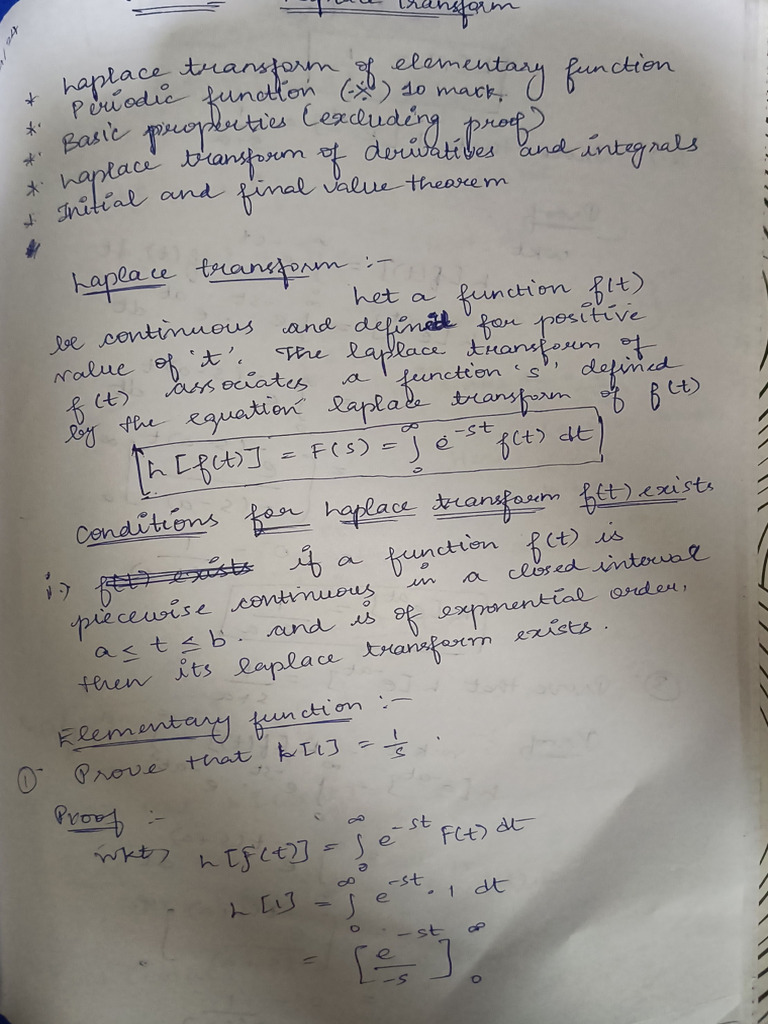 Laplace Transform
* Laplace transform of elementary function
* Periodic function (※) 10 mark.
* Basic properties (excluding proof)
* Laplace transform of derivatives and integrals
* Initial and final value theorem
Laplace transform :-
Let a function f(t)
be continuous and defined for positive
value of 't'. The laplace transform of
f(t) associates a function 's' defined
by the equation laplace transform of f(t)
L[f(t)] = F(s) = ∫₀^∞ e^{-st} f(t) dt
Conditions for Laplace transform f(t) exists
i.) if a function f(t) is
piecewise continuous in a closed interval
a ≤ t ≤ b. and is of exponential order,
then its laplace transform exists.
Elementary function :-
① Prove that L[1] = 1/s.
Proof :-
WKT, L[f(t)] = ∫₀^∞ e^{-st} F(t) dt
L[1] = ∫₀^∞ e^{-st} . 1 dt
= [e^{-st}/-s]₀^∞